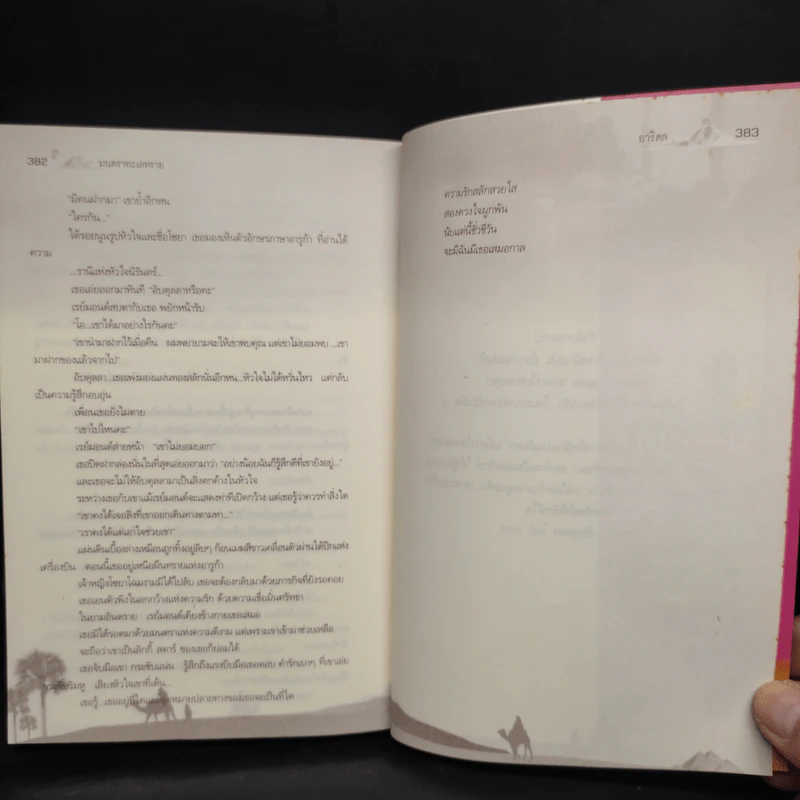 382 มนตราทะเลทราย
"มีคนฝากมา" เขาย้ำอีกหน
"ใครกัน..."
ใต้รอยนูนรูปหัวใจและชื่อโซยา เธอมองเห็นตัวอักษรภาษาอารูก้า ที่อ่านได้
ความ
...รานีแห่งหัวใจนิรันดร์...
เธอเอ่ยออกมาทันที "อับดุลลาหรือคะ"
เรย์มอนด์สบตากับเธอ พยักหน้ารับ
"โอ...เขาได้มาอย่างไรกันคะ"
"เขานำมาฝากไว้เมื่อคืน ผมพยายามจะให้เขาพบคุณ แต่เขาไม่ยอมพบ ...เขา
มาฝากของแล้วจากไป"
อับดุลลา...เธอเพ่งมองแผ่นทองสลักนั่นอีกหน...หัวใจไม่ได้หวั่นไหว แต่กลับ
เป็นความรู้สึกอบอุ่น
เพื่อนเธอยังไม่ตาย
"เขาไปไหนคะ"
เรย์มอนด์ส่ายหน้า "เขาไม่ยอมบอก"
เธอปิดฝากล่องนั่นในที่สุดเอ่ยออกมาว่า "อย่างน้อยฉันก็รู้สึกดีที่เขายังอยู่..."
และเธอจะไม่ให้อับดุลลามาเป็นสิ่งตกค้างในหัวใจ
ระหว่างเธอกับเขาแม้เรย์มอนด์จะแสดงท่าทีเปิดกว้าง แต่เธอรู้ว่าควรทำสิ่งใด
"เขาคงได้เจอสิ่งที่เขาออกเดินทางตามหา..."
"เขาคงได้แต่เอาใจช่วยเขา"
แผ่นดินเบื้องล่างเหมือนถูกทิ้งอยู่ลิบๆ ก้อนเมฆสีขาวเคลื่อนตัวผ่านใต้ปีกแห่ง
เครื่องบิน ตอนนี้เธออยู่เหนือผืนทรายแห่งอารูก้า
เจ้าหญิงโซยาโฉมงามมิได้ไปลับ เธอจะต้องกลับมาด้วยภารกิจที่ยังรอคอย
เธอเอนตัวพิงในอกกว้างแห่งความรัก ด้วยความเชื่อมั่นศรัทธา
ในยามอันตราย เรย์มอนด์เคียงข้างกายเธอเสมอ
เธอมิได้รอดมาด้วยมนตราแห่งความดีงาม แต่เพราะเขาเข้ามาช่วยเหลือ
จะถือว่าเขาเป็นลัคกี้ สตาร์ ของเธอก็ย่อมได้
เธอจับมือเขา กระชับแน่น รู้สึกถึงแรงบีบมือเธอตอบ คำรักเบาๆ ที่เขาเอ่ย
ริมหู เสียงหัวใจเขาที่เต้น...
เธอรู้...เธออยู่ที่ใดและจุดหมายปลายทางของเธอจะเป็นที่ใด
อาริตา 383
ความรักสลักสวยใส
สองดวงใจผูกพัน
นับแต่นี้ชั่วชีวัน
จะมีฉันมีเธอเสมอกาล